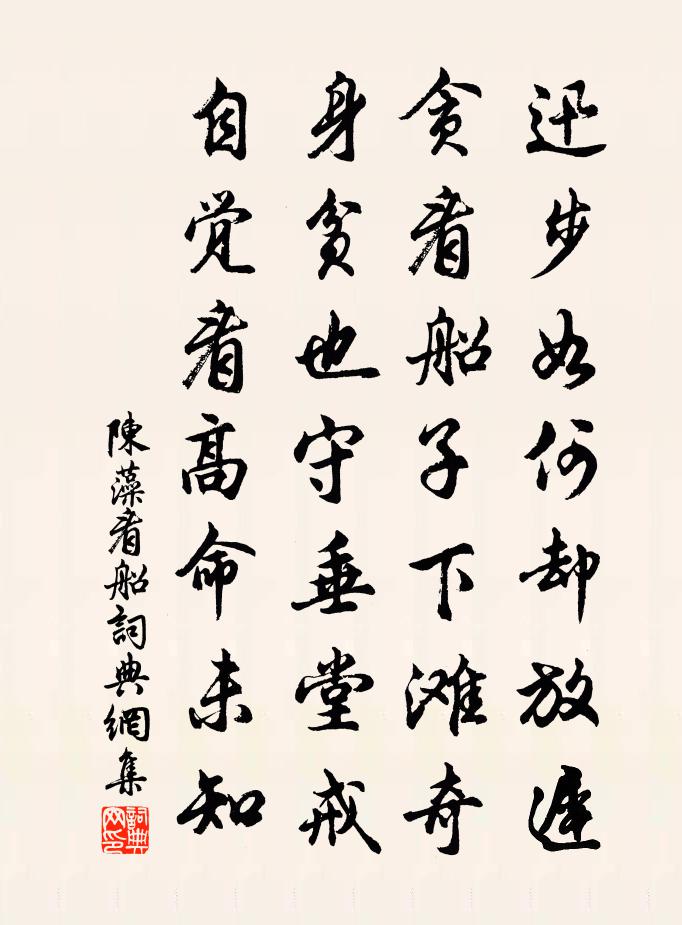 迅步如何却放遲
贪看船子下滩奇
身贫也守垂堂戒
自觉看高命未知
陳藻看船詞典網集
詞典网印